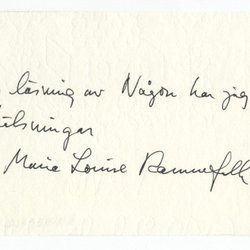 läsning av Någon har jag
Hälsningar
Maria Louise Ramnefalk